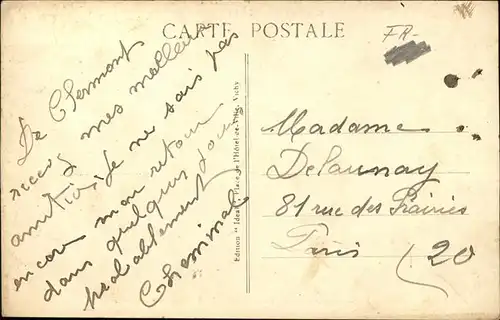 CARTE POSTALE
FR-
De Clermont
recevez mes meilleures
amitiés je ne sais pas
encore mon retour
dans quelques jours
probablement
Edition "Idéa" Place de l'Hôtel-de-Ville, Vichy
Madame
Delaunay
81 rue des Prairies
Paris (20